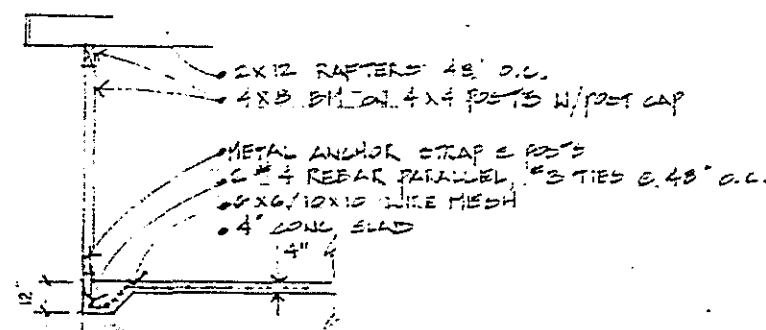 2X12 RAFTERS 48" O.C.
4X8 BM ON 4X4 POSTS W/POST CAP
METAL ANCHOR STRAP @ POSTS
#4 REBAR PARALLEL, #3 TIES @ 48" O.C.
6X6/10X10 WIRE MESH
4" CONC. SLAB
4"
12"